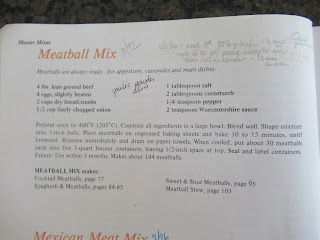 Master Mixes
Meatball Mix
Meatballs are always ready - for appetizers, casseroles and main dishes.
4 lbs. lean ground beef
4 eggs, slightly beaten
2 cups dry breadcrumbs
1/2 cup finely chopped onion
garlic powder
also
1 tablespoon salt
2 tablespoons cornstarch
1/4 teaspoon pepper
2 teaspoons Worcestershire sauce
Preheat oven to 400°F (205°C). Combine all ingredients in a large bowl. Blend well. Shape mixture
into 1-inch balls. Place meatballs on ungreased baking sheets and bake 10 to 15 minutes, until
browned. Remove immediately and drain on paper towels. When cooled, put about 30 meatballs
each into five 1-quart freezer containers, leaving 1/2-inch space at top. Seal and label containers.
Freeze. Use within 3 months. Makes about 144 meatballs.
MEATBALL MIX makes:
Cocktail Meatballs, page 77
Spaghetti & Meatballs, pages 84-85
Sweet & Sour Meatballs, page 95
Meatball Stew, page 103
Mexican Meat Mix